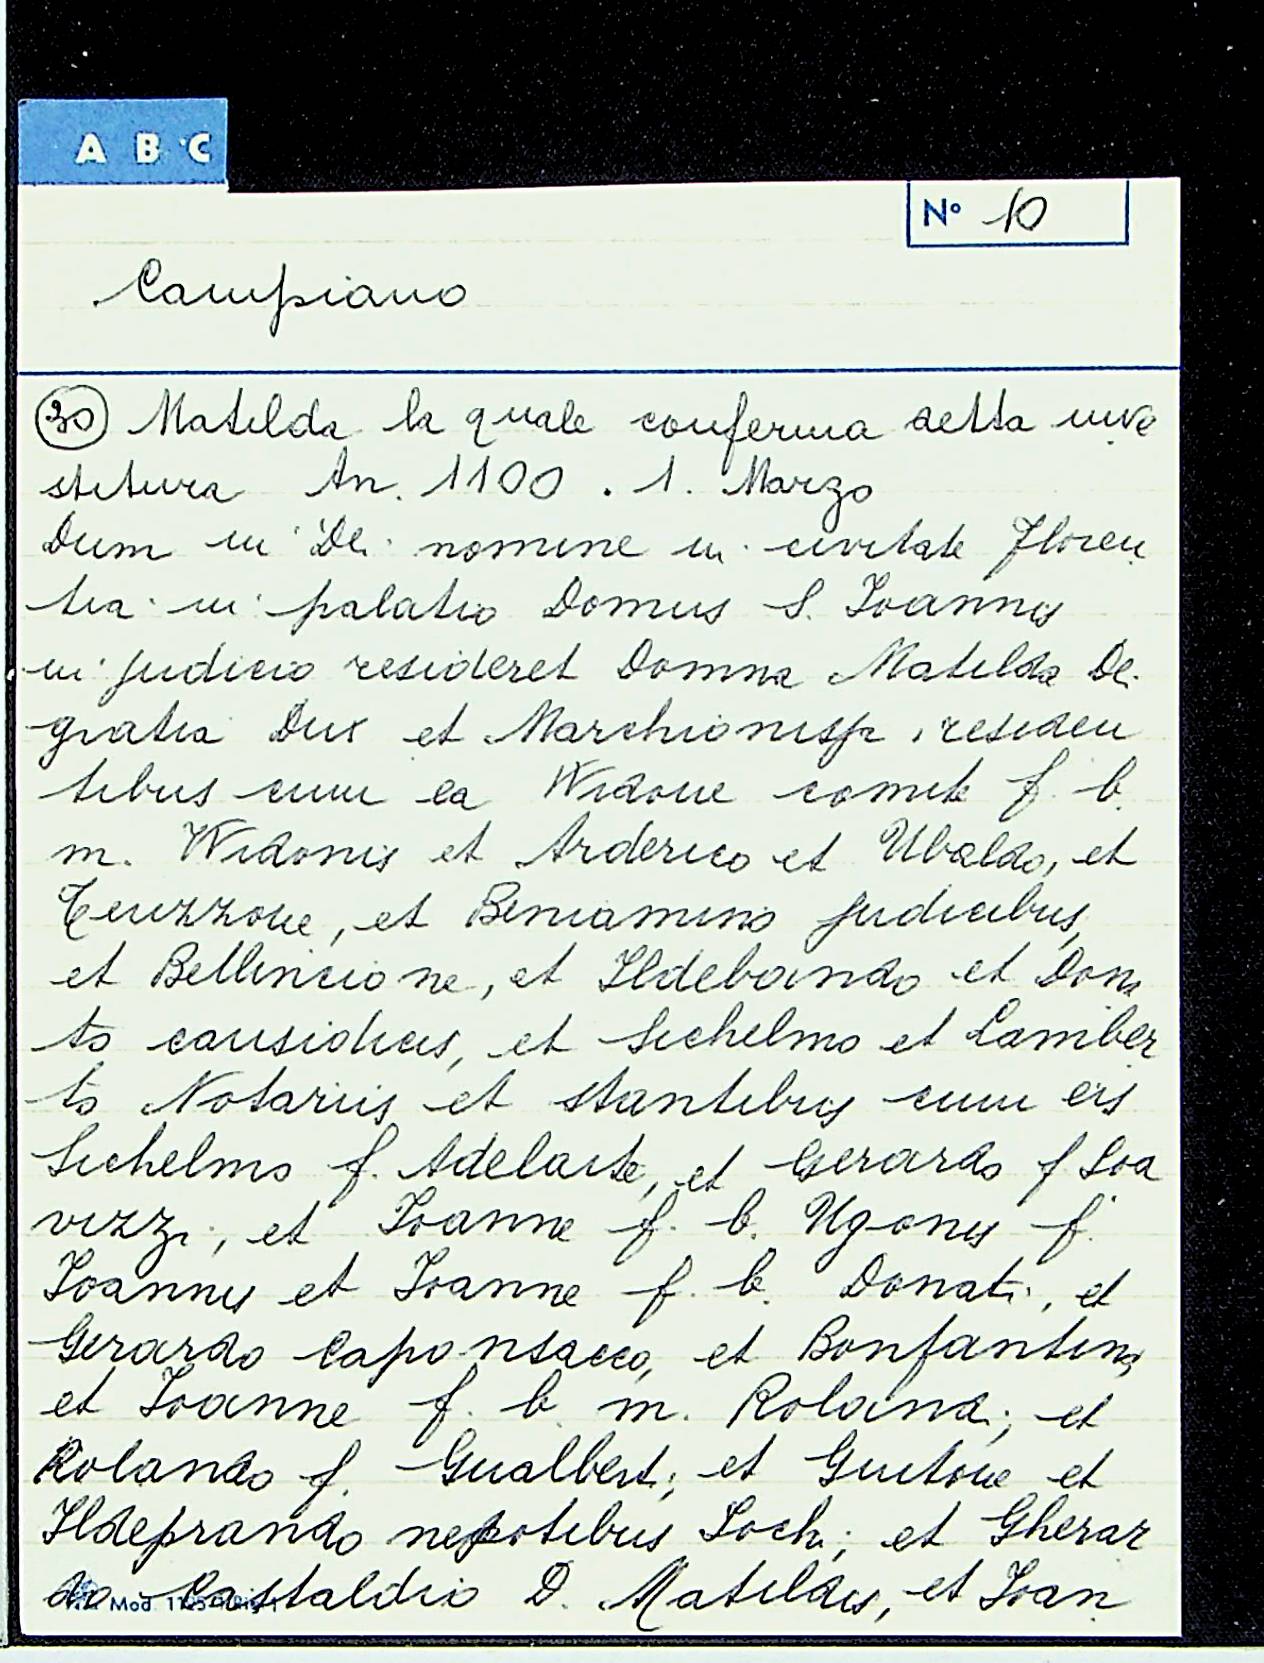 A B C
N° 10
Campiano
30 Matilda la quale conferma detta inve
stitura An. 1100 . 1. Marzo
Dum in Dei nomine in civitate Floren
tia in palatio Domus S. Joannis
in judicio resideret Domna Matilda Dei
gratia Dux et Marchionissa, residen
tibus cum ea Widone comite f. b.
m. Widonis et Arderico et Ubaldo, et
Teuzzone, et Beniamino judicibus,
et Bellincione, et Ildebando et Dona
to causidicis, et Sichelmo et Lamber
to Notariis et stantibus cum eis
Sichelmo f. Adelaite, et Gerardo f Soa
vizzi, et Joanne f. b. Ugonis f.
Joannis et Joanne f. b. Donati, et
Gerardo Caponsacco, et Bonfantino,
et Joanne f. b. m. Rolandi, et
Rolando f. Gualberti; et Guitone et
Ildeprando nepotibus Sochi; et Gherar
do Castaldio D. Matildis, et Joan
Mod